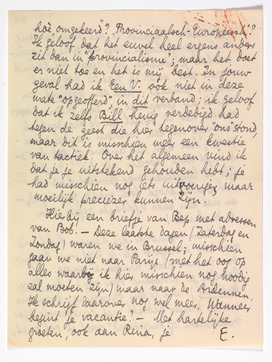 hoè omgekeerd? Provinciaalsch-Europeesch?
Ik geloof dat het euvel heel ergens anders
zit dan in "provincialisme", maar het doet
er niet toe en het is mij best. In jouw
geval had ik Een V. ook niet in deze
mate "opgeofferd", in dit verband; ik geloof
dat ik zelfs Bill hevig verdedigd had
tegen de geest die hier tegenover "ons" stond
maar dit is misschien meer een kwestie
van tactiek. Over het algemeen vind ik
dat je je uitstekend gehouden hebt; je
had misschien nog iets uitvoeriger, maar
moeilijk preciezer kunnen zijn.
Hierbij een briefje van Bep met adressen
van Bob. — Deze laatste dagen (Zaterdag en
Zondag) waren we in Brussel; misschien
gaan we niet naar Parijs (met het oog op
alles waarbij ik hier misschien nog noodig
zal moeten zijn) maar naar de Ardennen.
Ik schrijf daarover nog wel meer. Wanneer
begint je vacantie? — Met hartelijke
groeten, ook aan Rina, je
E.